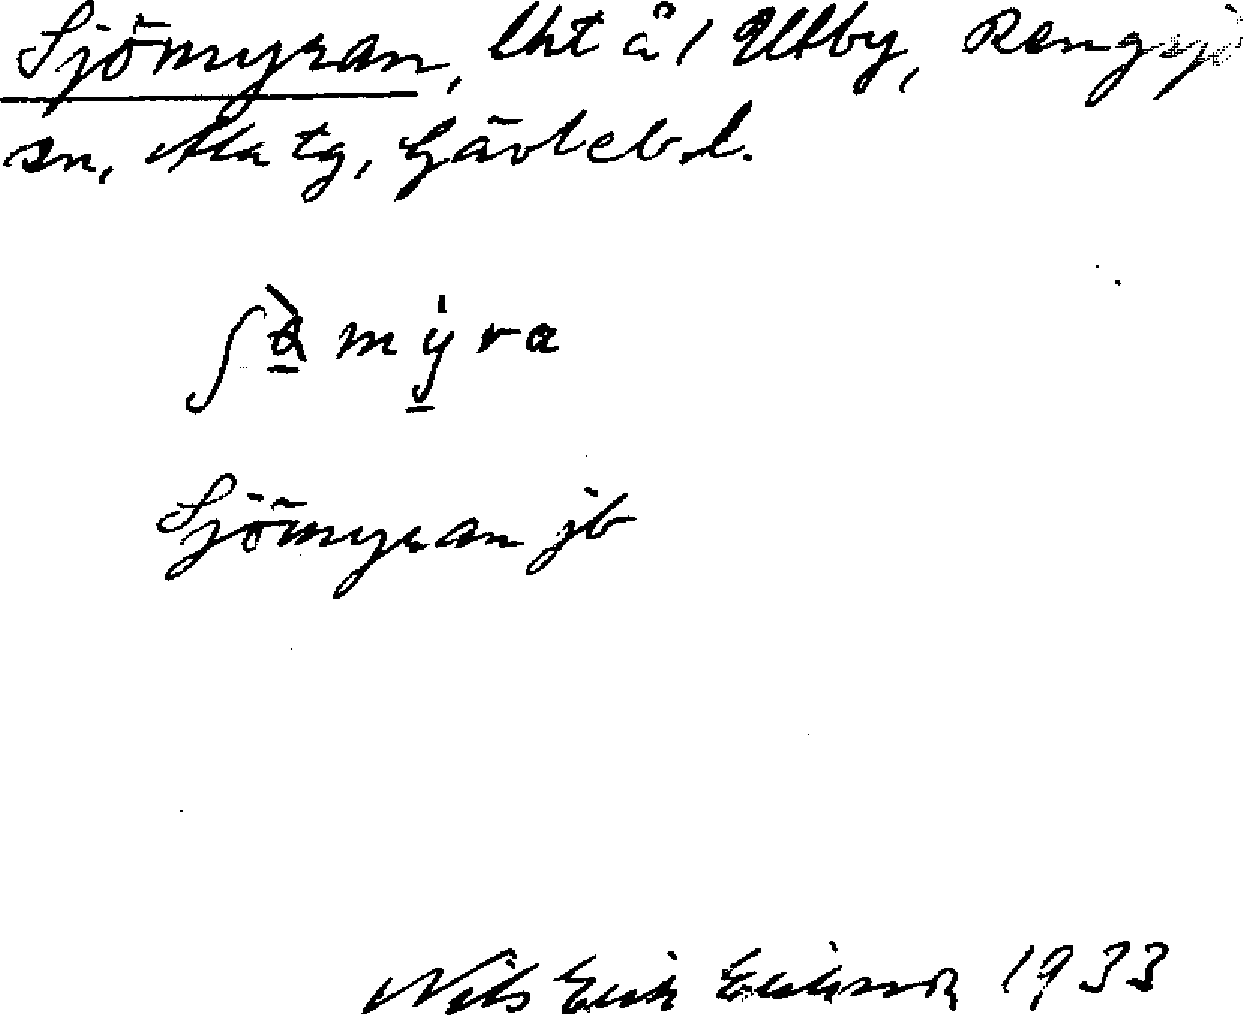 Sjömyran, lht å 1 Utby, Rengsjö
sn, Ala tg, Gävleb. l.
mýra
Sjömyran jb
Nils Erik Eriksson 1933